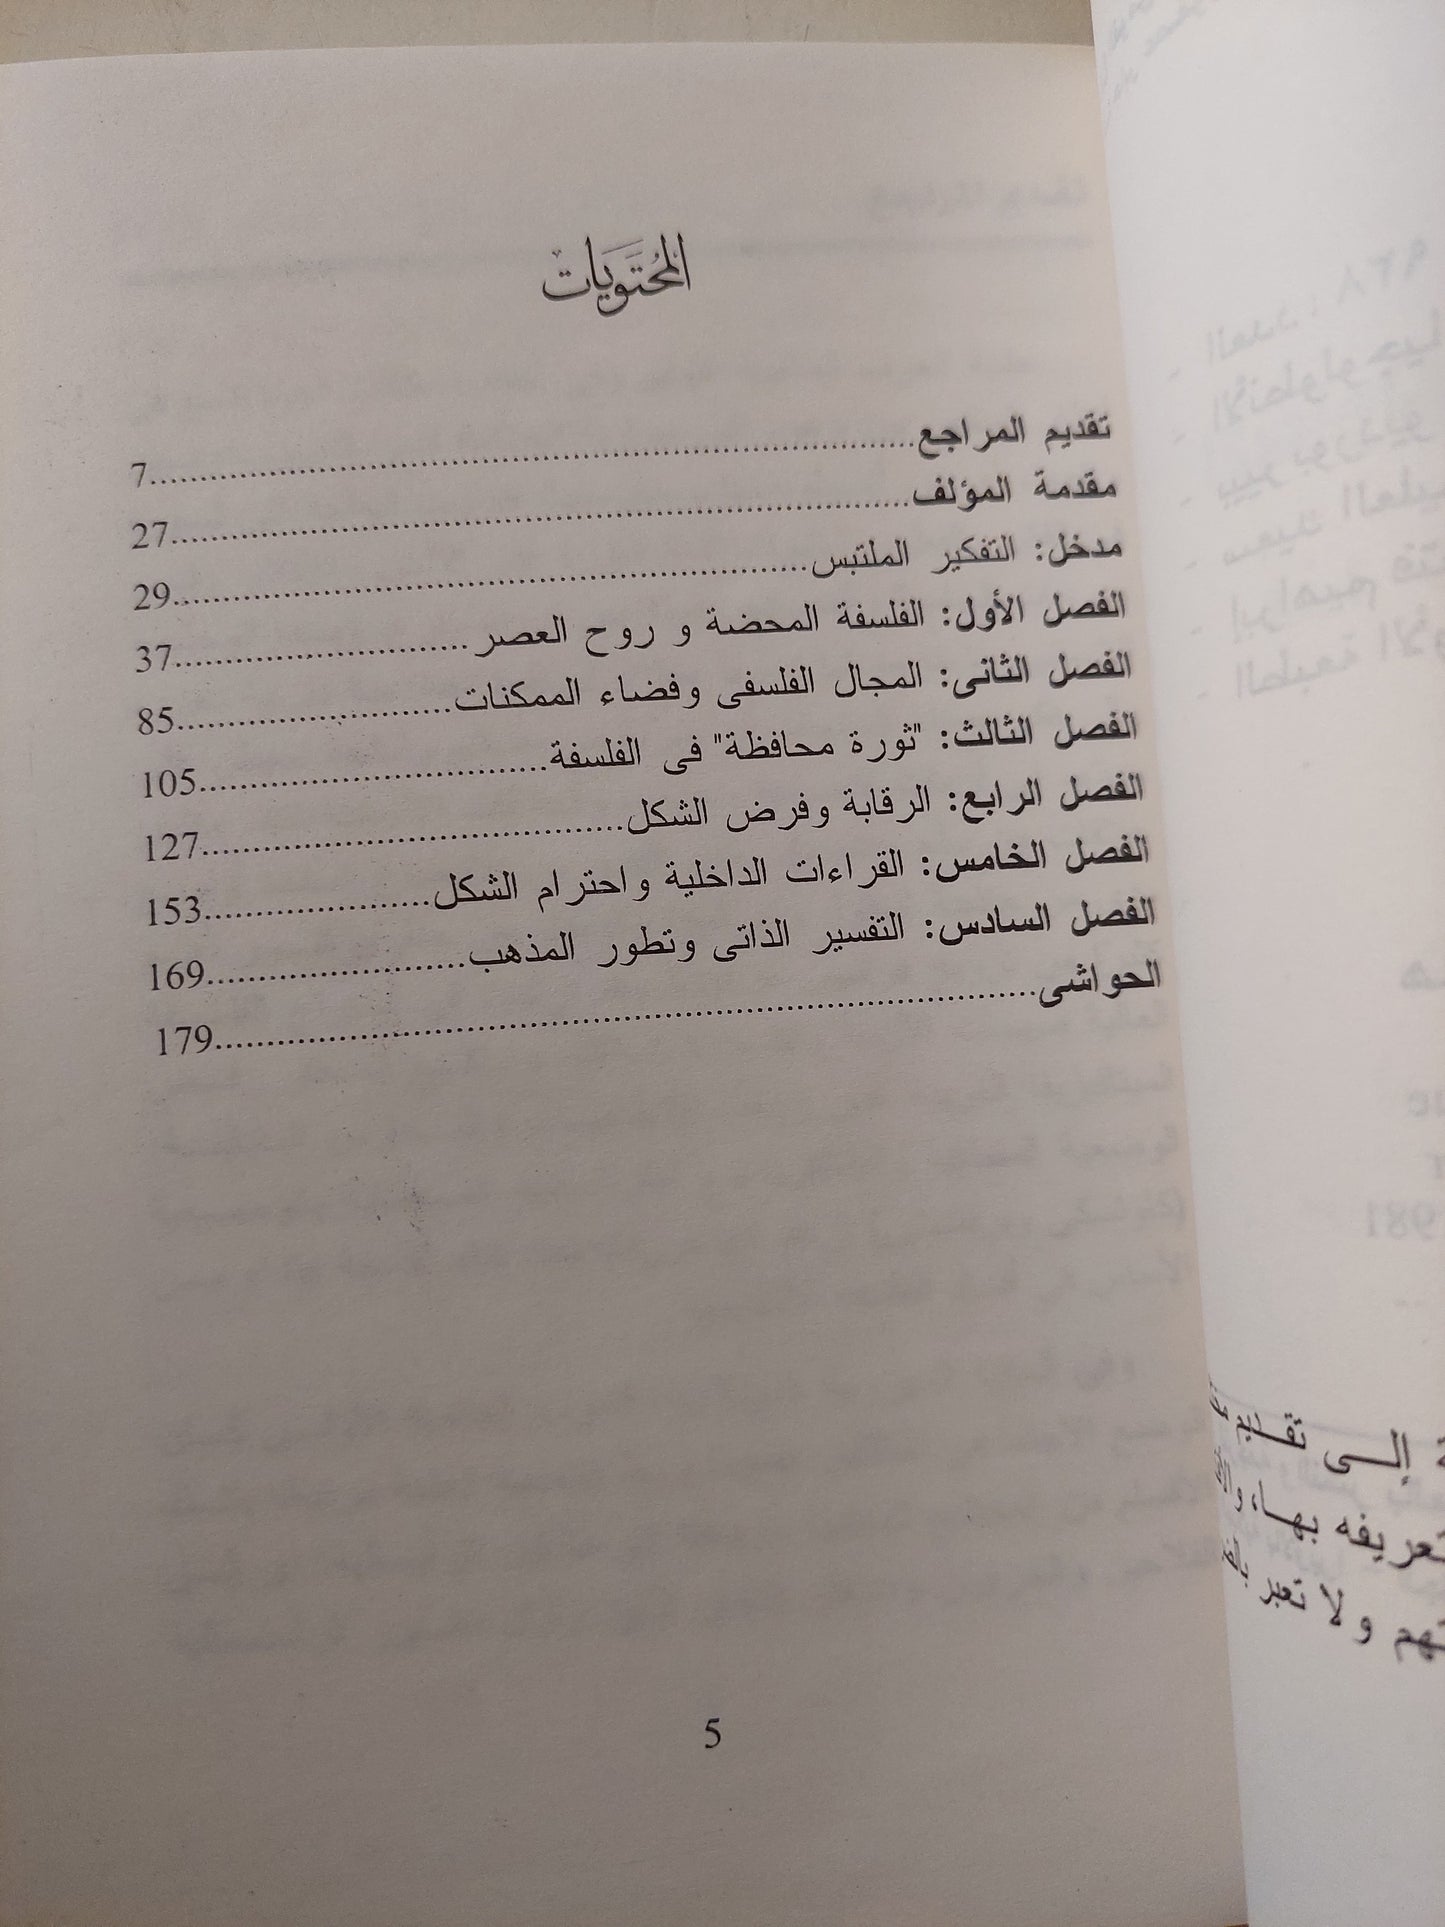 المُحتَوَيات
تقديم المراجع......7
مقدمة المؤلف......27
مدخل: التفكير الملتبس......29
الفصل الأول: الفلسفة المحضة و روح العصر......37
الفصل الثانى: المجال الفلسفى وفضاء الممكنات......85
الفصل الثالث: "ثورة محافظة" فى الفلسفة......105
الفصل الرابع: الرقابة وفرض الشكل......127
الفصل الخامس: القراءات الداخلية واحترام الشكل......153
الفصل السادس: التفسير الذاتى وتطور المذهب......169
الحواشى......179
5
إلى تقديم
تعريفه بها،
ولا تعبر